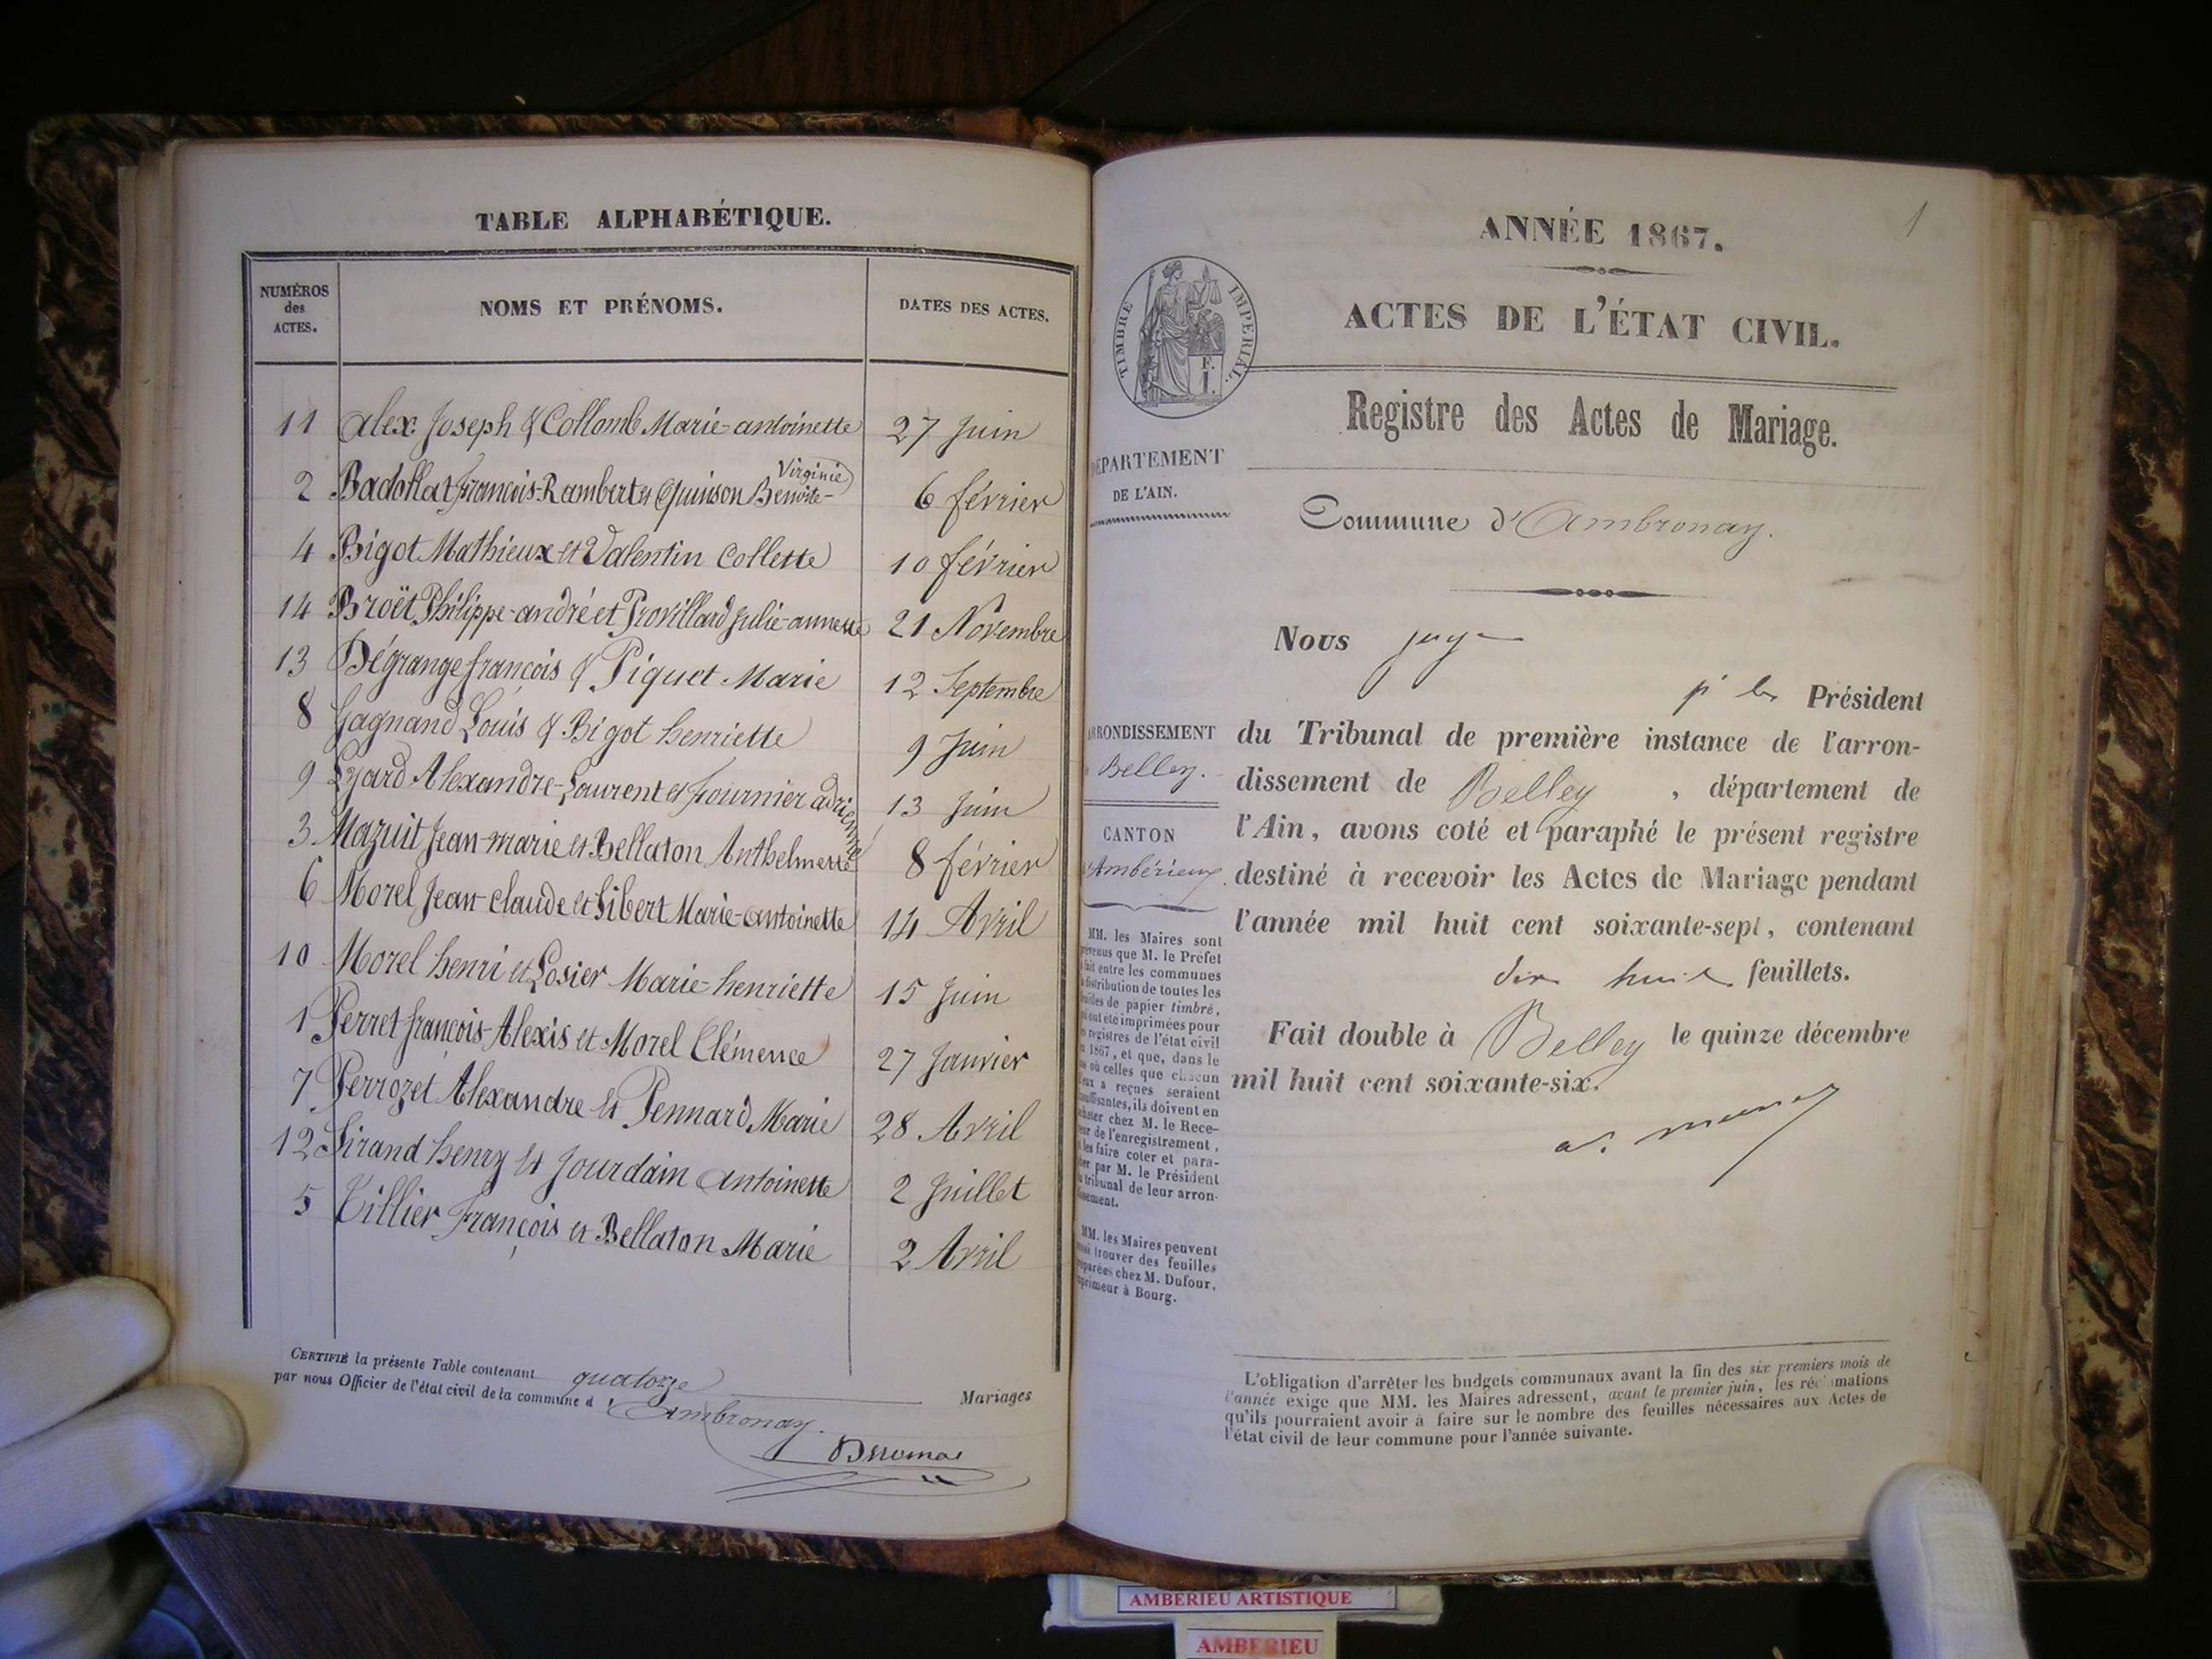 TABLE ALPHABÉTIQUE.
NUMÉROS des ACTES. NOMS ET PRÉNOMS. DATES DES ACTES.
11 Alex Joseph & Collomb Marie-antoinette 27 Juin
2 Badollat François-Rambert et Quinson Benoite-Virginie 6 février
4 Bigot Mathieux et Valentin Collette 10 février
14 Broët Philippe-andré et Provillard Julie-annette 21 Novembre
13 Dégrange françois & Piquet Marie 12 Septembre
8 Gagnand Louis & Bigot henriette 9 Juin
9 Lyard Alexandre-Laurent et Fournier adrienne 13 Juin
3 Mazuit Jean-marie et Bellaton Anthelmette 8 février
6 Morel Jean-claude et Sibert Marie-antoinette 14 Avril
10 Morel henri et Losier Marie-henriette 15 Juin
1 Perret françois-Alexis et Morel Clémence 27 Janvier
7 Perrozet Alexandre et Pennard Marie 28 Avril
12 Sirand henry et Jourdain Antoinette 2 Juillet
5 Tillier François et Bellaton Marie 2 Avril
CERTIFIÉ la présente Table contenant quatorze Mariages
par nous Officier de l'état civil de la commune d'Ambronay.
1
ANNÉE 1867.
ACTES DE L'ÉTAT CIVIL.
TIMBRE IMPÉRIAL.
F. I.
Registre des Actes de Mariage.
DÉPARTEMENT
DE L'AIN.
Commune d'Ambronay.
ARRONDISSEMENT
Belley.
CANTON
d'Ambérieux.
MM. les Maires sont
prévenus que M. le Préfet
a fait entre les communes
la distribution de toutes les
feuilles de papier timbré,
qui ont été imprimées pour
les registres de l'état civil
en 1867, et que, dans le
cas où celles que chacun
d'eux a reçues seraient
insuffisantes, ils doivent en
acheter chez M. le Rece-
veur de l'enregistrement,
et les faire coter et para-
pher par M. le Président
du tribunal de leur arron-
dissement.
MM. les Maires peuvent
aussi trouver des feuilles
préparées chez M. Dufour,
imprimeur à Bourg.
Nous juge
Président
du Tribunal de première instance de l'arron-
dissement de Belley, département de
l'Ain, avons coté et paraphé le présent registre
destiné à recevoir les Actes de Mariage pendant
l'année mil huit cent soixante-sept, contenant
dix huit feuillets.
Fait double à Belley le quinze décembre
mil huit cent soixante-six.
L'obligation d'arrêter les budgets communaux avant la fin des six premiers mois de
l'année exige que MM. les Maires adressent, avant le premier juin, les réclamations
qu'ils pourraient avoir à faire sur le nombre des feuilles nécessaires aux Actes de
l'état civil de leur commune pour l'année suivante.
AMBERIEU ARTISTIQUE
AMBERIEU